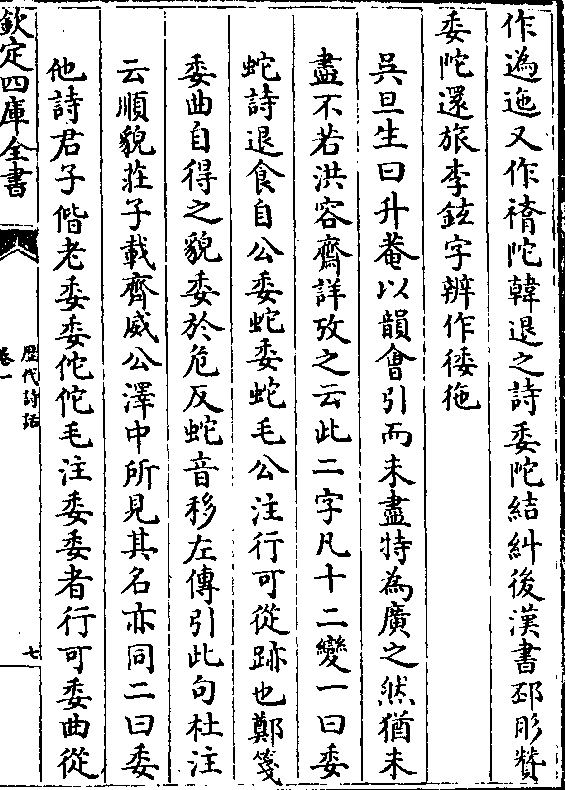 作潙迤又作禙陀韓退之詩委陀結糾後漢書邳彤贊
委陀還旅李鉉字辨作㣲㐌
吳旦生曰升菴以韻會引而未盡特為廣之然猶未
盡不若洪容齋詳攷之云此二字凡十二變一曰委
蛇詩退食自公委蛇委蛇毛公注行可從跡也鄭箋
委曲自得之貌委於危反蛇音移左傳引此句杜注
云順貌莊子載齊威公澤中所見其名亦同二曰委
他詩君子偕老委委佗佗毛注委委者行可委曲從
欽定四庫全書
歷代詩話
卷一
七